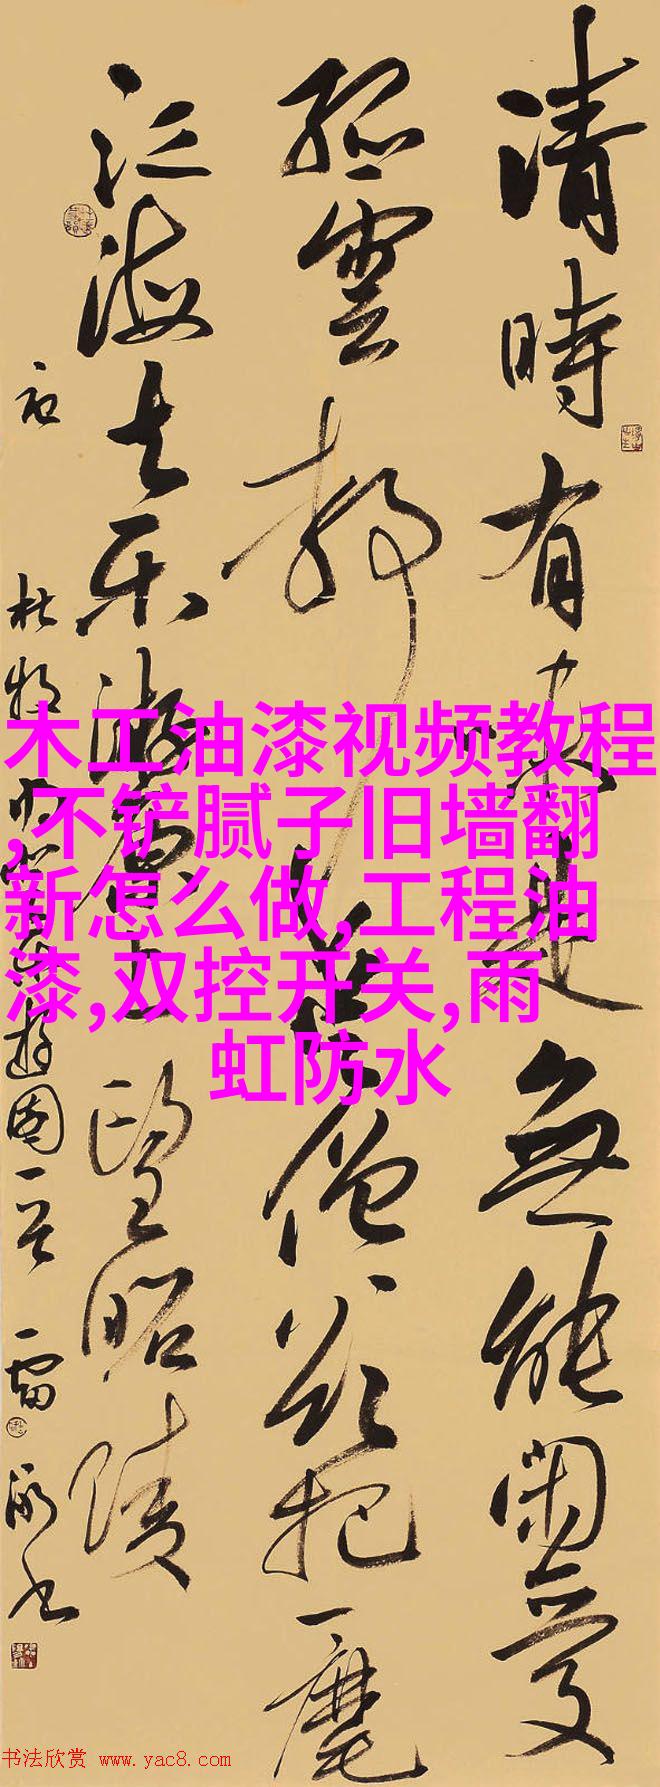 清時有味是無能閑愛
孤雲静愛僧欲把一麾
江海去乐游原上望昭陵
杜牧
木工油漆视频教程
,不铲腻子旧墙翻
新怎么做,工程油
漆,双控开关,雨
虹防水
书法欣赏 www.yac8.com